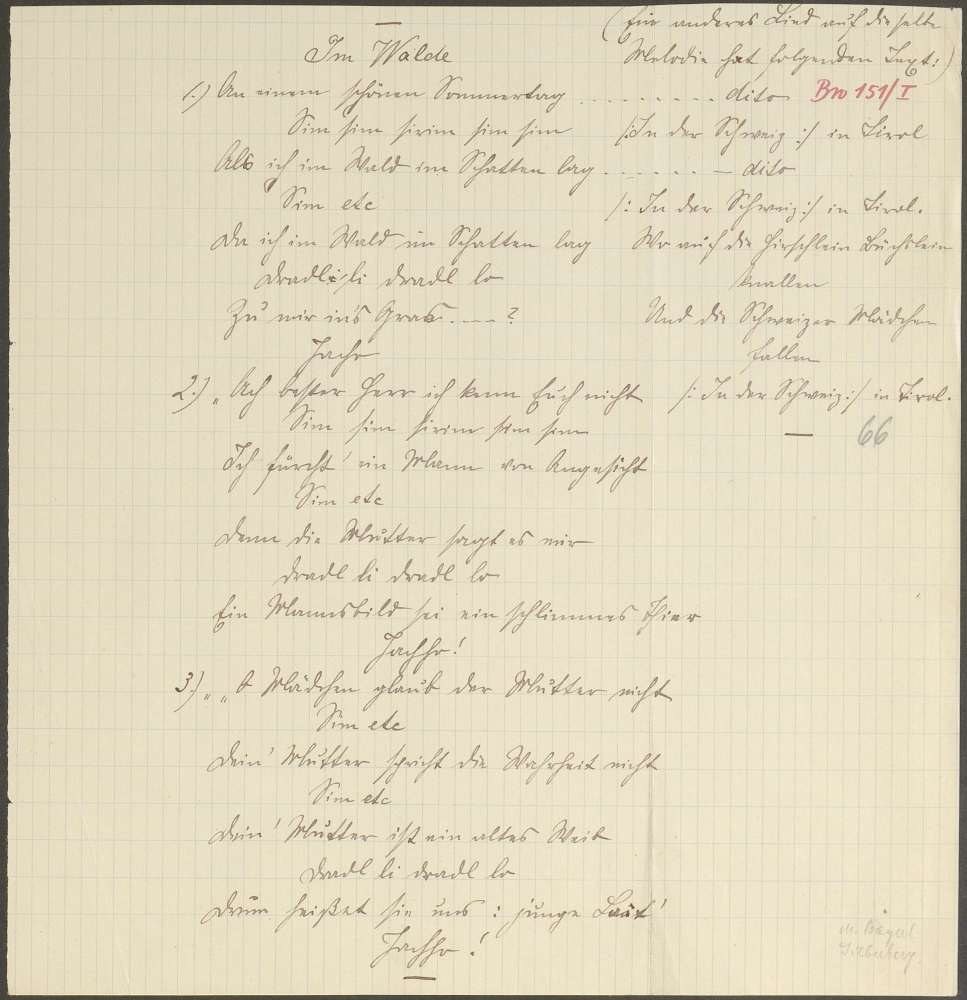 Im Walde
1.) An einem schönen Sommertag
Sim sim sirim sim sim
Als ich im Wald im Schatten lag
Sim etc
Da ich im Wald im Schatten lag
dradl li dradl lo
Zu mir in's Gras ..—?
2.) „Ach bester Herr ich kenn Euch nicht
Sim sim sirim sim sim
Ich fürcht' ein Mann von Angesicht
Sim etc
Denn die Mutter sagt es mir
dradl li dradl lo
Ein Mannsbild sei ein schlimmes Thier
Juchhe!
3.) „ „O Mädchen glaub der Mutter nicht
Sim etc
Dein' Mutter spricht die Wahrheit nicht
Sim etc
Dein' Mutter ist ein altes Weib
dradl li dradl lo
Drum heißet sie uns: junge Leut'
Juchhe!
(Ein anderes Lied auf dieselbe
Melodie hat folgenden Text:)
......... dito Bro 151/I
/:In der Schweiz:/ in Tirol
...... — dito
/: In der Schweiz:/ in Tirol.
Wo auf die Hirschlein Büchslein
knallen
Und die Schweizer Mädchen
fallen
/: In der Schweiz:/ in Tirol.
66